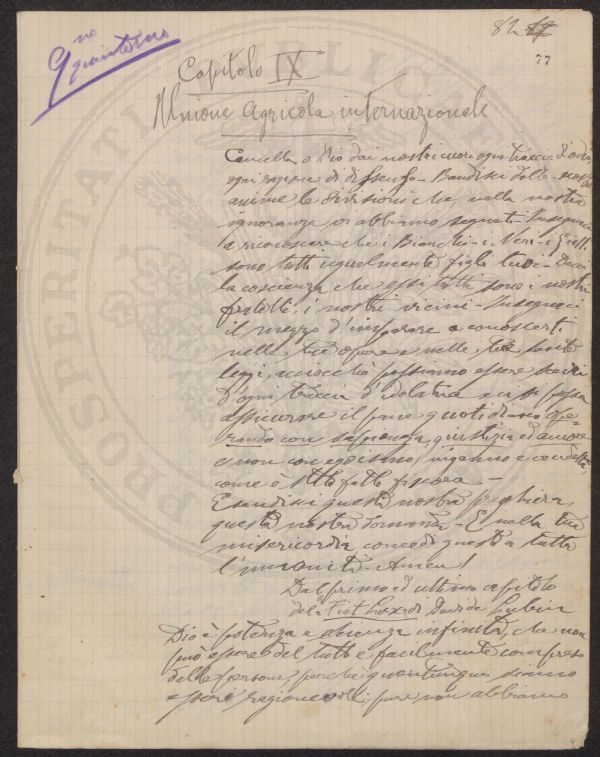 9 no quinterno
82 17
77
Capitolo IX
Unione Agricola internazionale
Cancella o Dio dai nostri cuori ogni traccia d'odio,
ogni ragione di dissenso - Bandisci dalle nostre
anime le divisioni che, nella nostra
ignoranza, vi abbiamo segnati - Insegnaci
a riconoscere che i Bianchi - i Neri - i Gialli
sono tutti ugualmente figli tuoi - Dacci
la coscienza che essi tutti sono i nostri
fratelli, i nostri vicini - Insegnaci
il mezzo d'imparare a conoscerti
nelle tue opere e nelle tue sante
leggi, acciocchè possiamo essere
d'ogni traccia d'idolatria e ci si possa
assicurare il pane quotidiano ope-
rando con sapienza, giustizia ed amore
e non con egoismo, inganno e
come è stato fatto finora -
Esaudisci questa nostra preghiera,
questa nostra domanda - E nella tua
misericordia, concedi questo a tutta
l'umanità - Amen!
Dal primo ed ultimo capitolo
del Fiat Lux di Davide Lubin
Dio è potenza e scienza infinita, che non
può essere del tutto e facilmente compreso
dalle persone, perchè quantunque siamo
esseri ragionevoli, pure non abbiamo
PROSPERITATI PUBLICAE